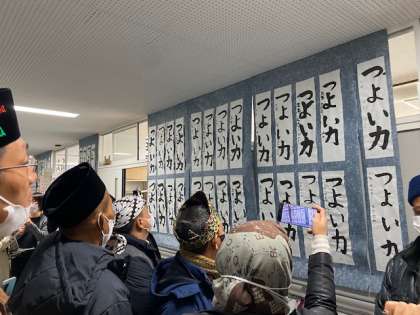 つよい力
つよい力
つよい力
つよい力
つよい力
つよい力
つよい力
つよい力
つよい力
つよい力
つよい力
つよい力
つよい力
つよい力
つよい力
つよい
つよい
つよい力